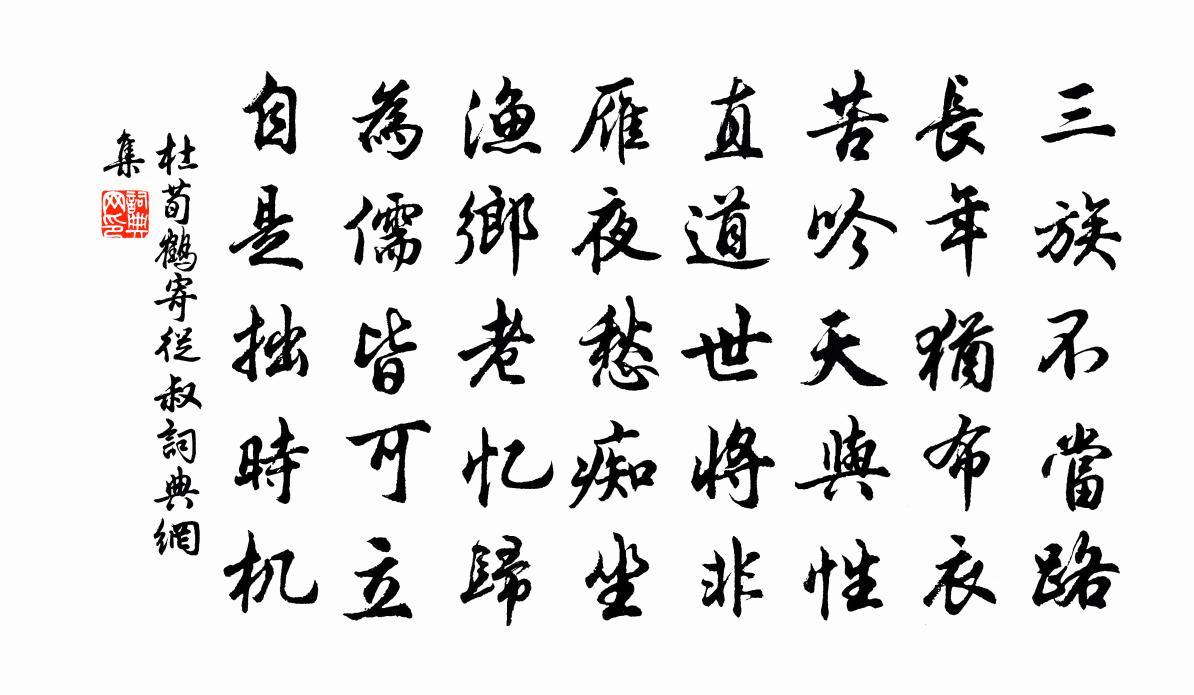 三族不當路
長年猶布衣
苦吟天與性
直道世將非
雁夜愁痴坐
渔鄉老忆歸
為儒皆可立
自是拙時机
杜荀鶴寄從叔詞典網
集
詞典
网印